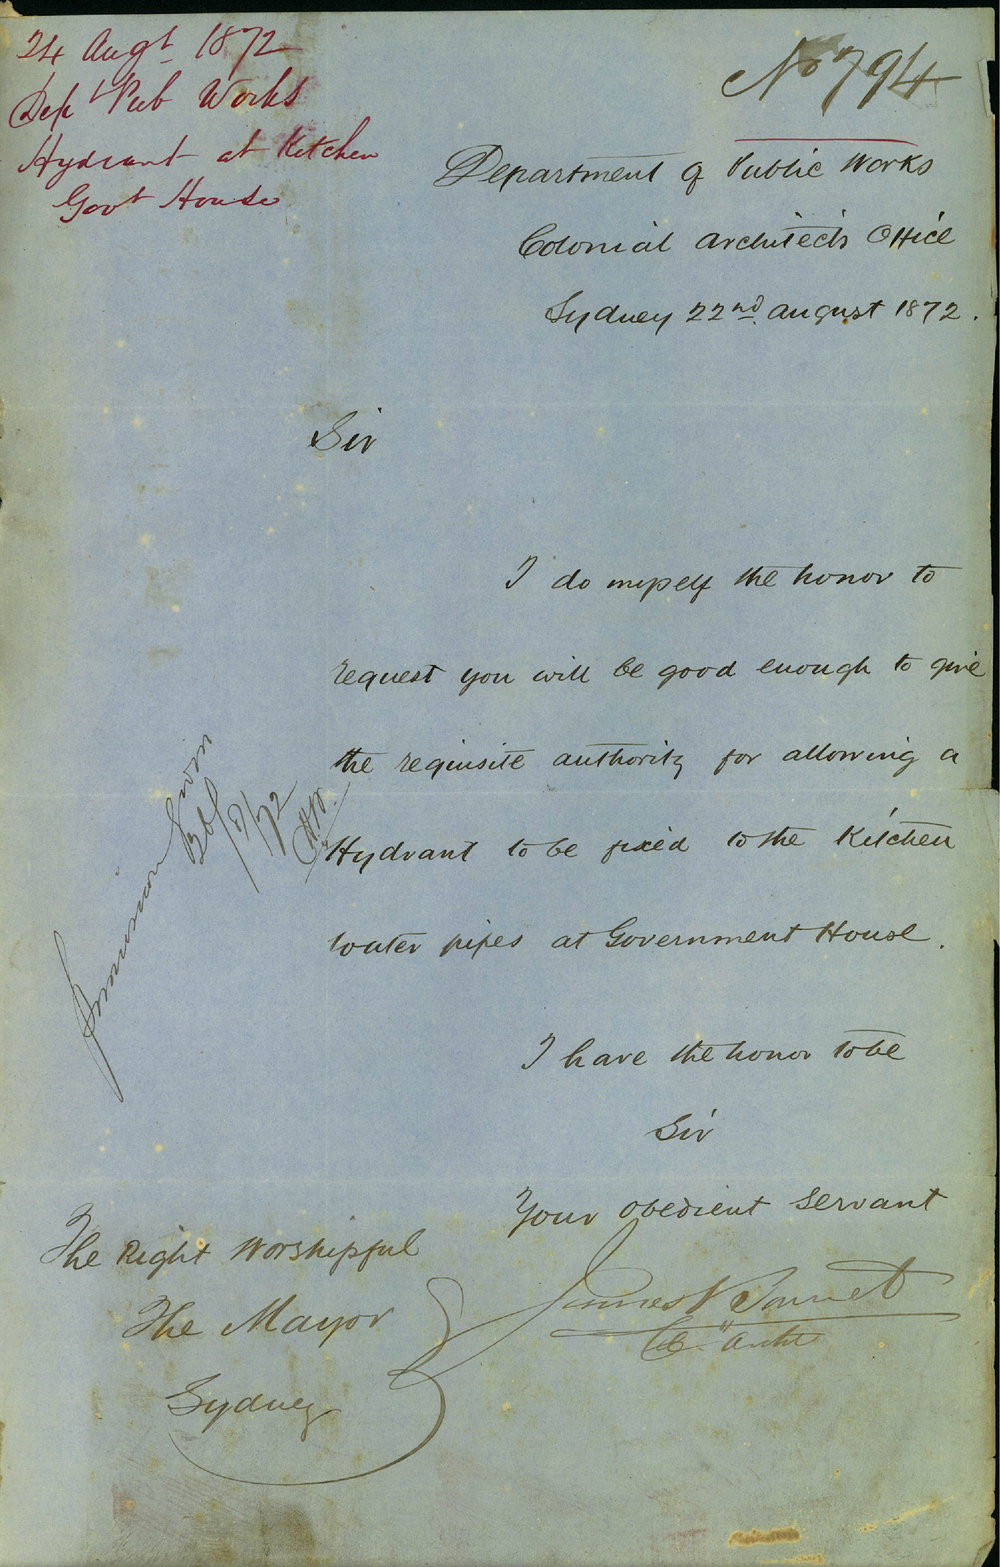 24 Augt 1872
Dept Pub Works
Hydrant at Kitchen
Govt House
No 794
Department of Public Works
Colonial Architects Office
Sydney 22nd August 1872.
Sir
I do myself the honor to
request you will be good enough to give
the requisite authority for allowing a
Hydrant to be fixed to the Kitchen
water pipes at Government House.
I have the honor to be
Sir
Your obedient servant
James Barnet
Col Archt
The Right Worshipful
The Mayor
Sydney